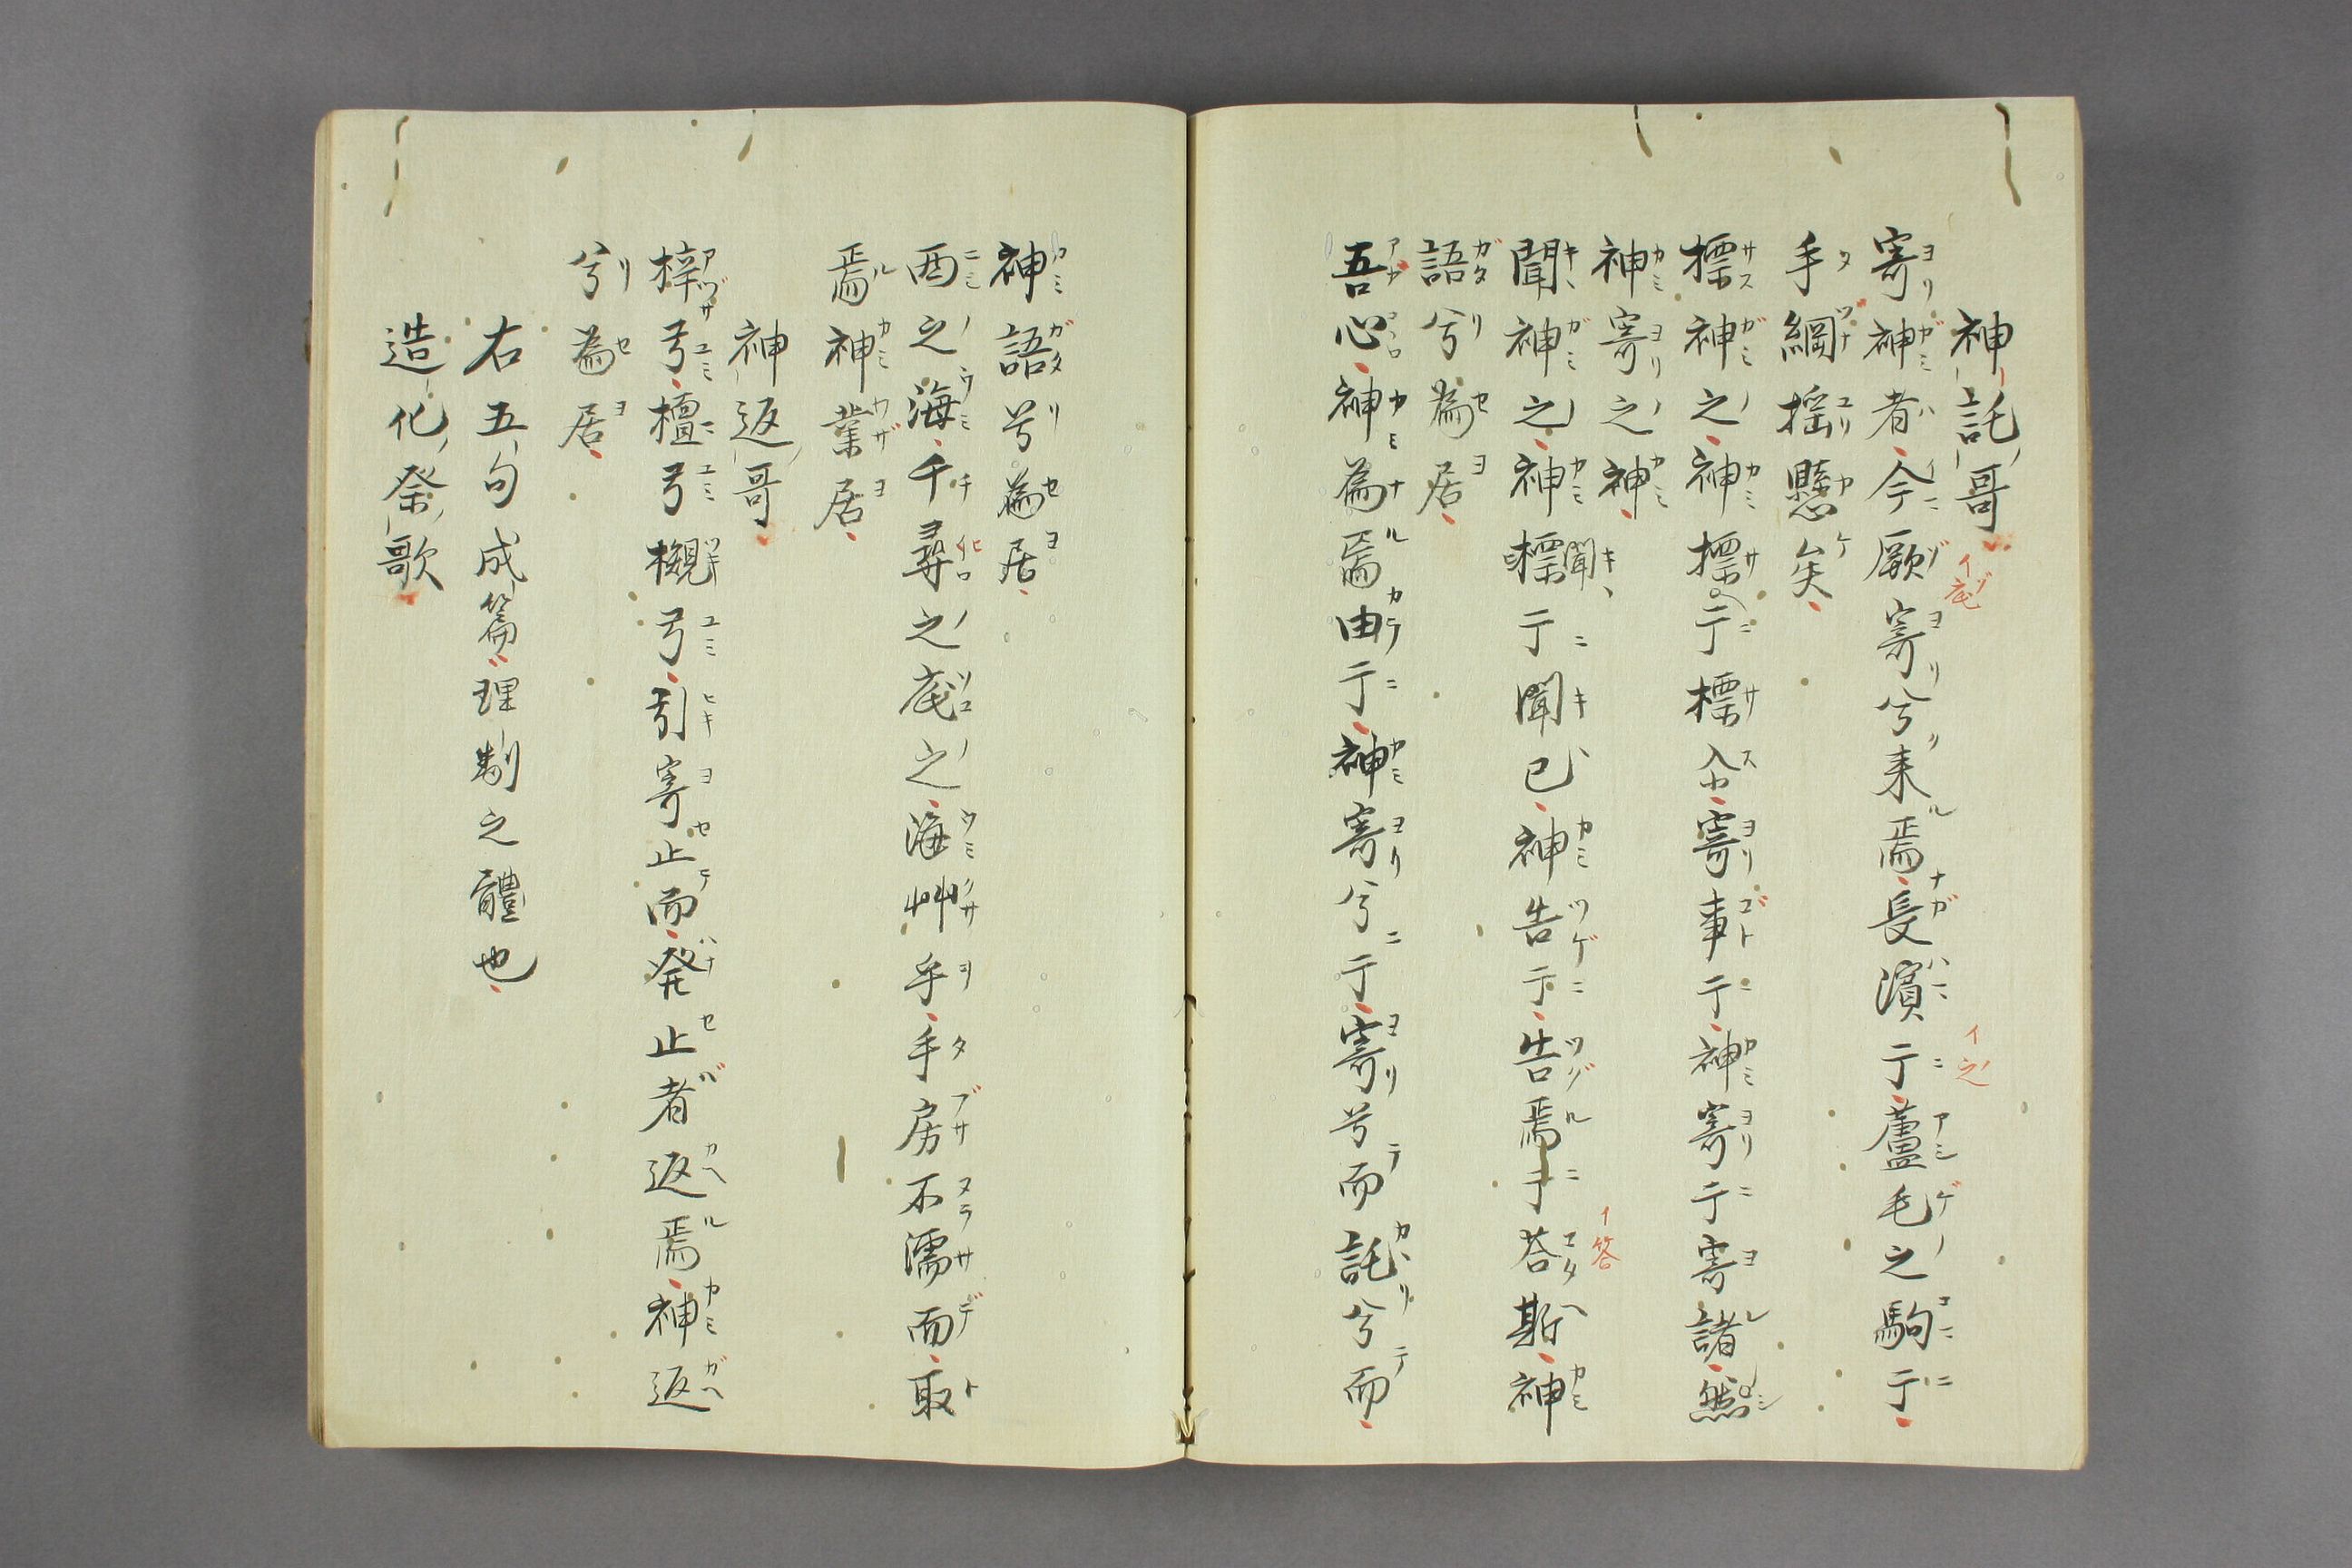 神託哥
寄神者今厥寄兮来焉長濱亍蘆毛之駒亍
手綱揺懸矣
標神之神標亍標㒰寄事亍神寄亍寄諸然
神寄之神
聞神之神聞標亍聞已神告亍告焉亍荅斯神
語兮為居
吾心神為焉由亍神寄兮亍寄兮而託兮而
神語兮為居
西之海千尋之底之海艸乎手房不濡而取
焉神業居
神返哥
梓弓檀弓槻弓引寄止而発止者返焉神返
兮為居
右五句成篇理制之體也
造化祭歌